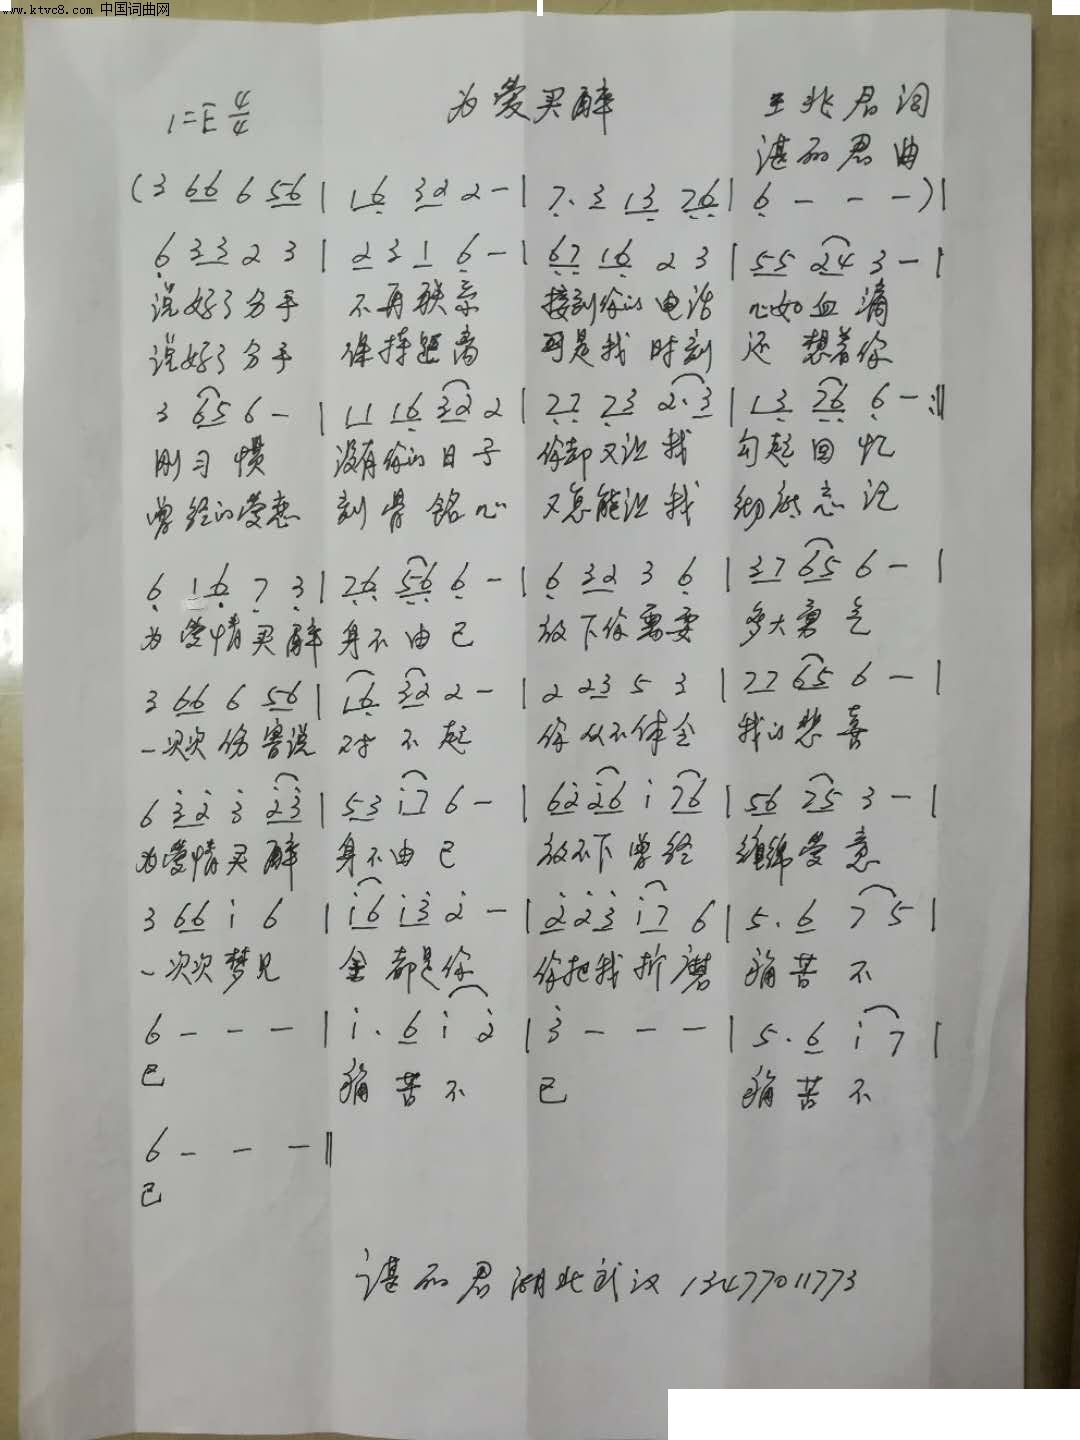 www.ktvc8.com 中国词曲网
1=E 4/4 为爱买醉 王兆君词
湛丽君曲
(3 66 6 56 | 16 32 2 — | 7· 3 13 76 | 6 — — — )|
6 33 2 3 | 2 3 1 6 — | 67 16 2 3 | 55 24 3 — |
说好了分手 不再联系 接到你的电话 心如血滴
说好了分手 保持距离 可是我时刻 还想着你
3 65 6 — | 11 16 32 2 | 77 73 2·3 | 13 76 6 — :‖
刚习惯 没有你的日子 你却又让我 勾起回忆
曾经的爱恋 刻骨铭心 又怎能让我 彻底忘记
6 16 7 3 | 76 56 6 — | 6 32 3 6 | 37 65 6 — |
为爱情买醉 身不由己 放下你需要 多大勇气
3 66 6 56 | 16 32 2 — | 2 23 5 3 | 77 65 6 — |
一次次伤害说 对不起 你从不体会 我的悲喜
6 3̇2̇ 3̇ 2̇3̇ | 53 i7 6 — | 62̇ 2̇6 i 76 | 56 75 3 — |
为爱情买醉 身不由己 放不下曾经 缠绵爱意
3 66 i 6 | i6 i3̇ 2̇ — | 2̇2̇3̇ i7 6 | 5· 6 7 5 |
一次次梦见 全都是你 你把我折磨 痛苦不
6 — — — | i· 6 i 2̇ | 3̇ — — — | 5· 6 i 7 |
已 痛苦不 已 痛苦不
6 — — — ‖
已
湛丽君湖北武汉 13477011773